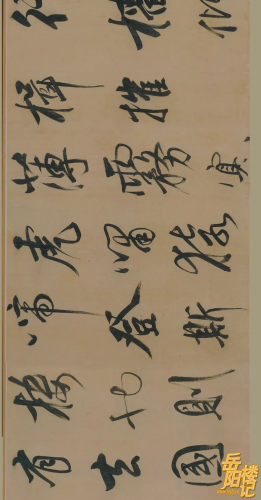 行檣
楫摧
薄霧冥
虎嘯猿
啼登斯
樓也則
有去國
岳阳楼记